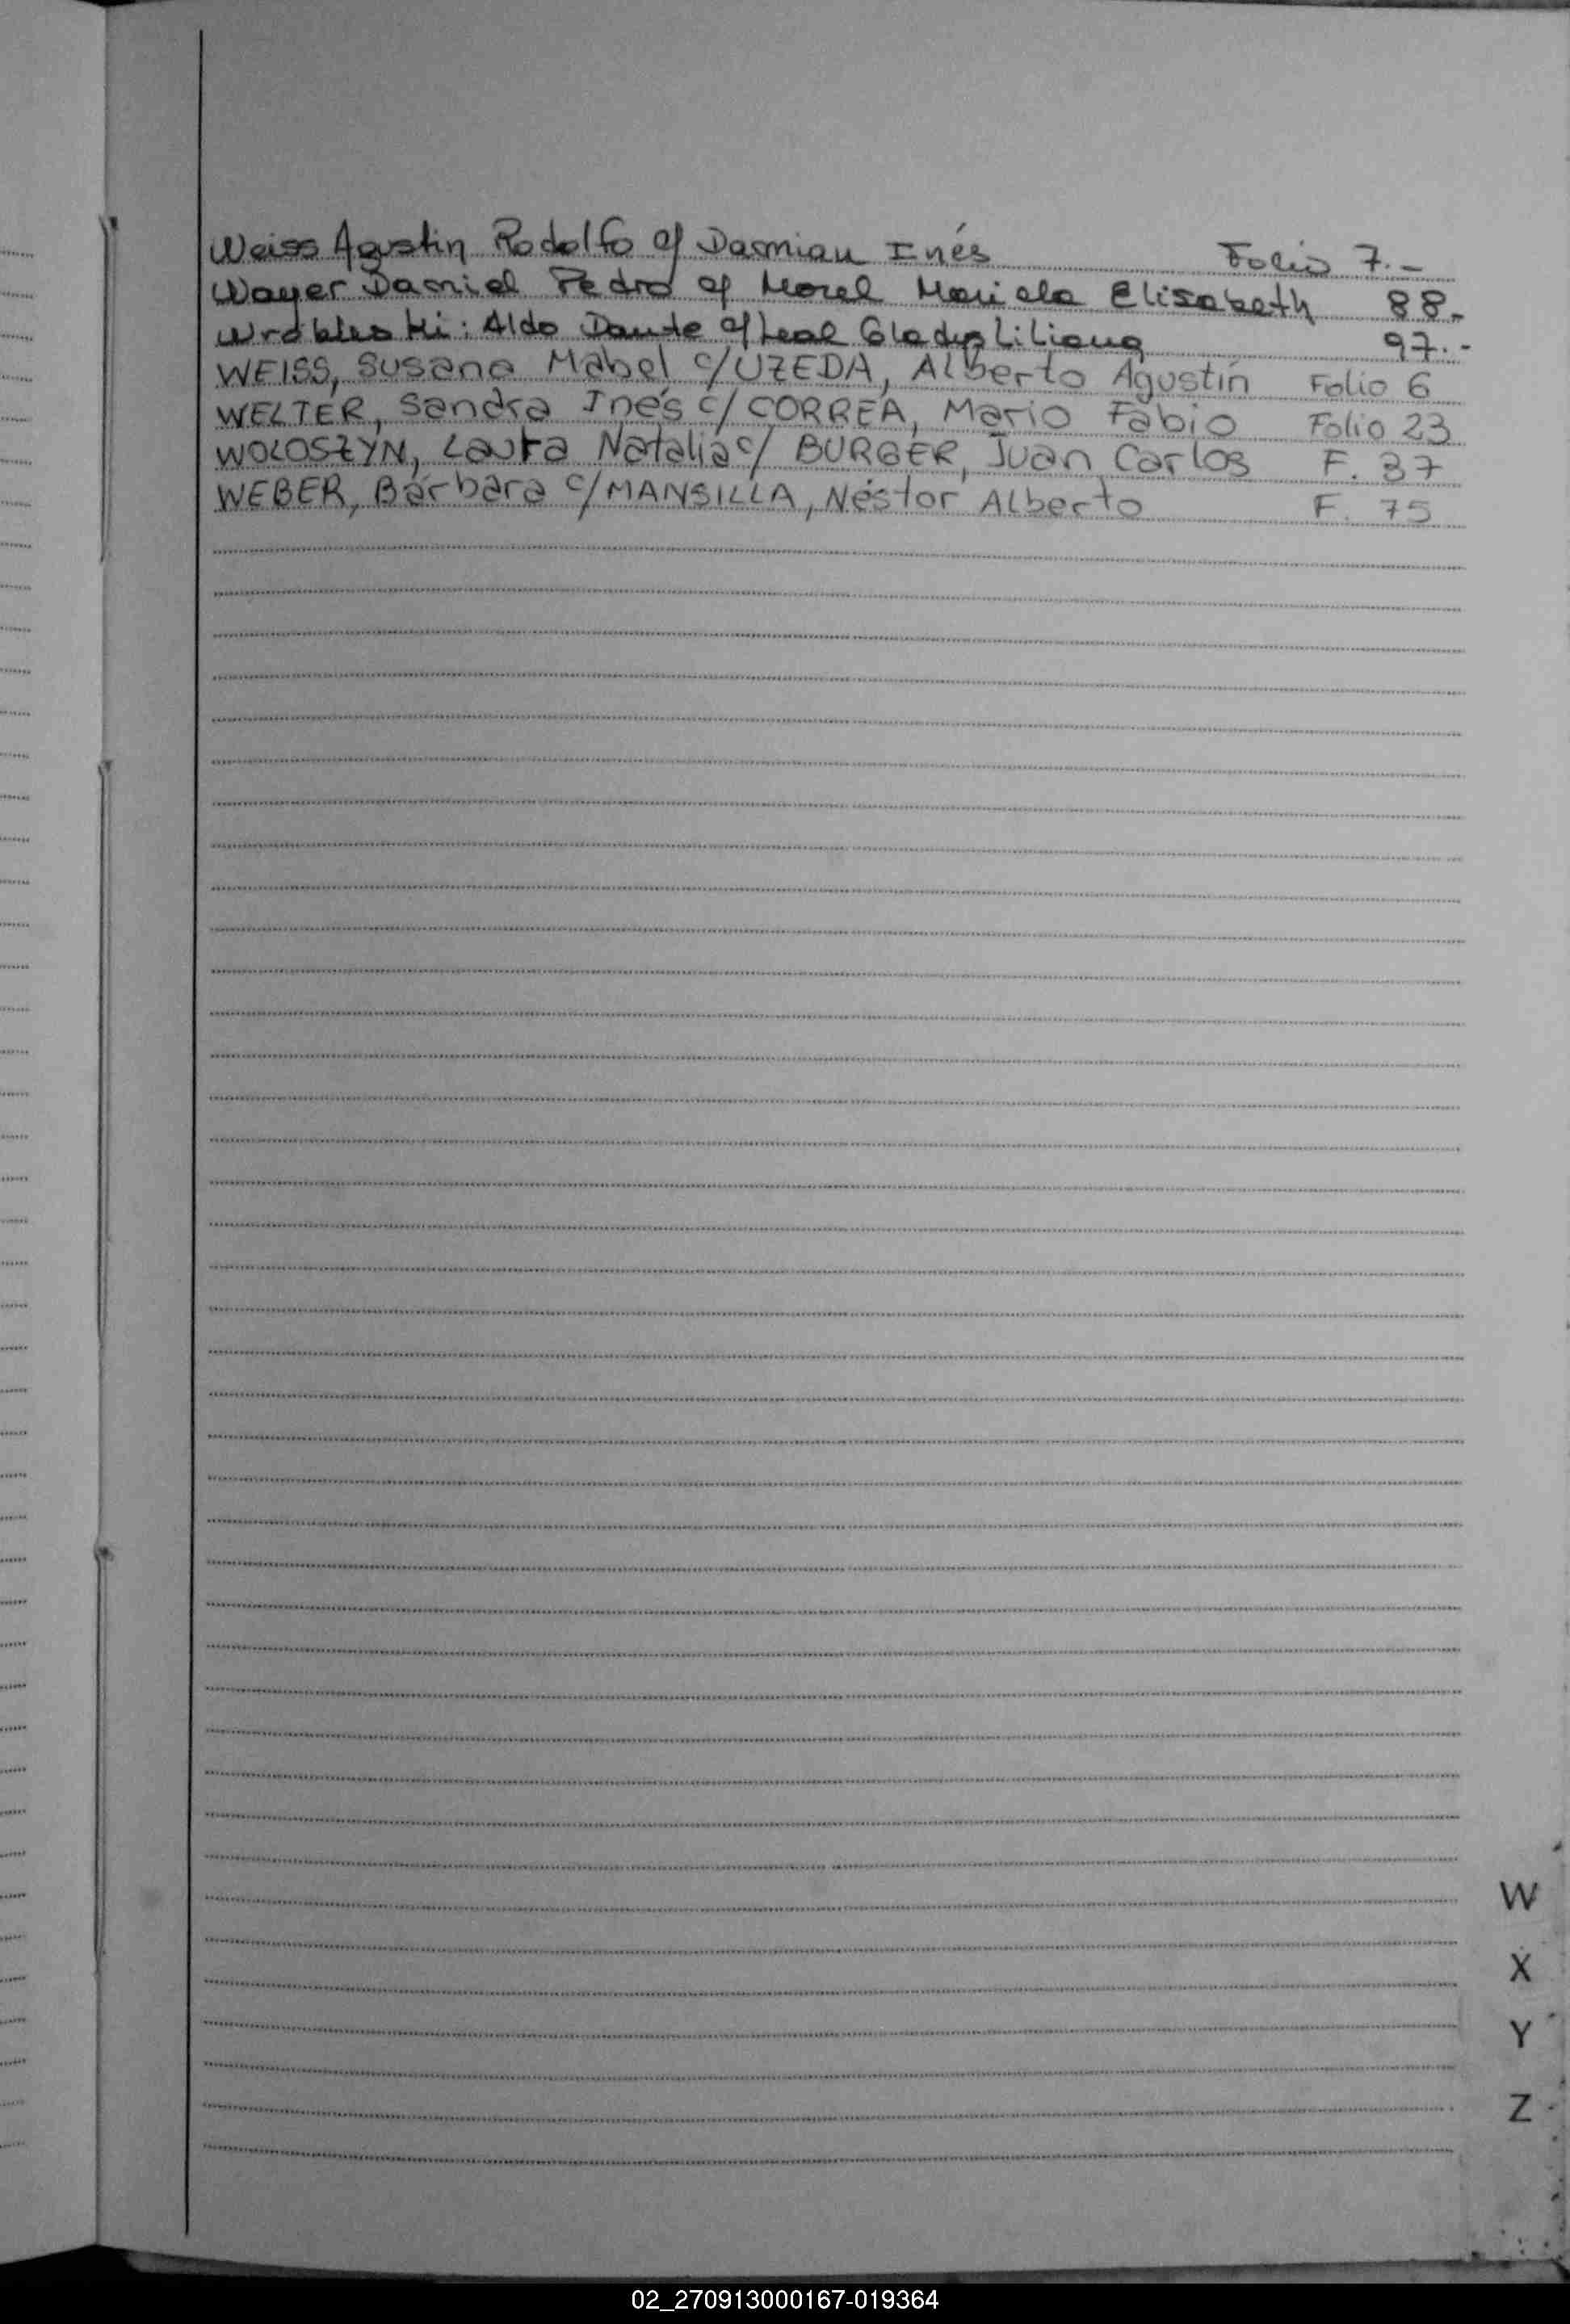 Weiss Agustin Rodolfo c/ Damian Inés Folio 7.-
Wayer Daniel Pedro c/ Morel Mariela Elisabeth 88.-
Wrobleski: Aldo Dante c/ Leal Gladys Liliana 97.-
WEISS, Susana Mabel c/ UZEDA, Alberto Agustín Folio 6
WELTER, Sandra Inés c/ CORREA, Mario Fabio Folio 23
WOLOSZYN, Laura Natalia c/ BURGER, Juan Carlos F. 37
WEBER, Bárbara c/ MANSILLA, Néstor Alberto F. 75
W
X
Y
Z
02_270913000167-019364